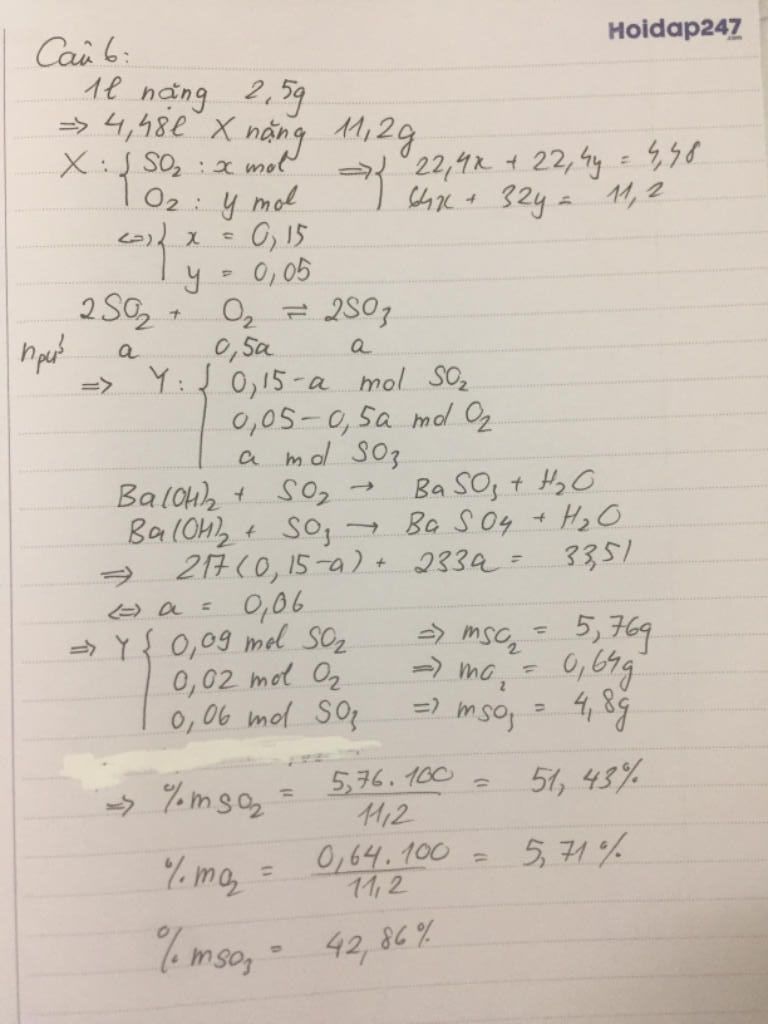 Hoidap247
.com
Câu 6:
1l nặng 2,5g
=> 4,48l X nặng 11,2g
X : { SO₂ : x mol => { 22,4x + 22,4y = 4,48
O₂ : y mol 64x + 32y = 11,2
<=> { x = 0,15
y = 0,05
2SO₂ + O₂ ⇌ 2SO₃
npứ a 0,5a a
=> Y : { 0,15-a mol SO₂
0,05-0,5a mol O₂
a mol SO₃
Ba(OH)₂ + SO₂ → BaSO₃ + H₂O
Ba(OH)₂ + SO₃ → BaSO₄ + H₂O
=> 217(0,15-a) + 233a = 33,51
<=> a = 0,06
=> Y { 0,09 mol SO₂ => mSO₂ = 5,76g
0,02 mol O₂ => mO₂ = 0,64g
0,06 mol SO₃ => mSO₃ = 4,8g
=> %mSO₂ = 5,76.100/11,2 = 51,43%
%mO₂ = 0,64.100/11,2 = 5,71%
%mSO₃ = 42,86%